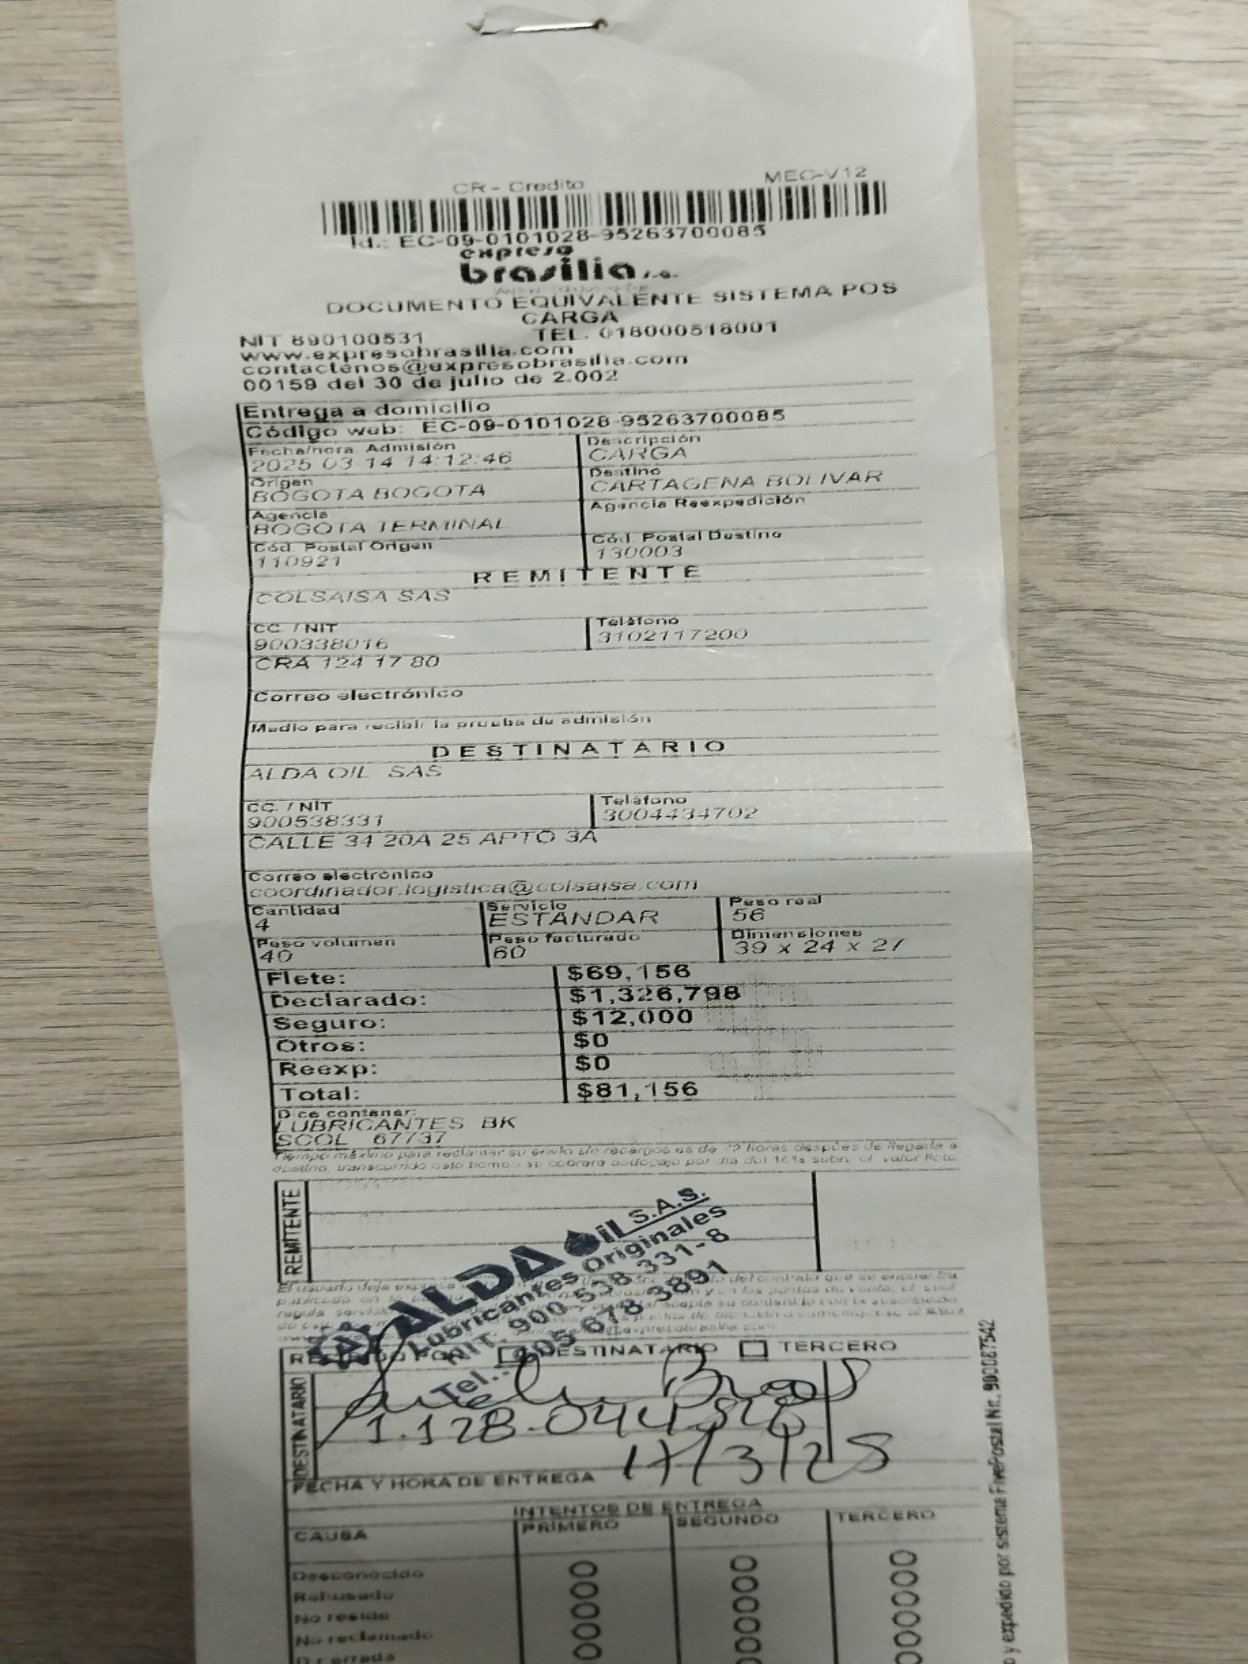 CR - Credito
MEC-V12
Id.: EC-09-0101028-95263700085
expreso
brasilia s.a.
DOCUMENTO EQUIVALENTE SISTEMA POS
CARGA
NIT 890100531 TEL. 018000518001
www.expresobrasilia.com
contactenos@expresobrasilia.com
00159 del 30 de julio de 2.002
Entrega a domicilio
Código web: EC-09-0101028-95263700085
Fecha/hora Admisión
2025 03 14 14:12:46
Descripción
CARGA
Origen
BOGOTA BOGOTA
Destino
CARTAGENA BOLIVAR
Agencia
BOGOTA TERMINAL
Agencia Reexpedición
Cód. Postal Origen
110921
Cód. Postal Destino
130003
REMITENTE
COLSAISA SAS
CC. / NIT
900338016
Teléfono
3102117200
CRA 124 17 80
Correo electrónico
Medio para recibir la prueba de admisión
DESTINATARIO
ALDA OIL SAS
CC. / NIT
900538331
Teléfono
3004434702
CALLE 31 20A 25 APTO 3A
Correo electrónico
coordinador.logistica@colsaisa.com
Cantidad
4
Servicio
ESTANDAR
Peso real
56
Peso volumen
40
Peso facturado
60
Dimensiones
39 x 24 x 27
Flete: $69,156
Declarado: $1,326,798
Seguro: $12,000
Otros: $0
Reexp: $0
Total: $81,156
Dice contener:
LUBRICANTES BK
SCOL 67737
Tiempo máximo para reclamar su envío sin recargos es de 72 horas después de llegada a
destino, transcurrido este tiempo se cobrará bodegaje por día del 10% sobre el valor flete
REMITENTE
ALDA OIL S.A.S.
Lubricantes Originales
NIT. 900.538.331-8
Tel.: 605 678 3891
DESTINATARIO
TERCERO
DESTINATARIO
FECHA Y HORA DE ENTREGA 17/3/25
INTENTOS DE ENTREGA
CAUSA PRIMERO SEGUNDO TERCERO
Desconocido
Rehusado
No reside
No reclamado
y expedido por sistema FivePostal Nit., 900087542